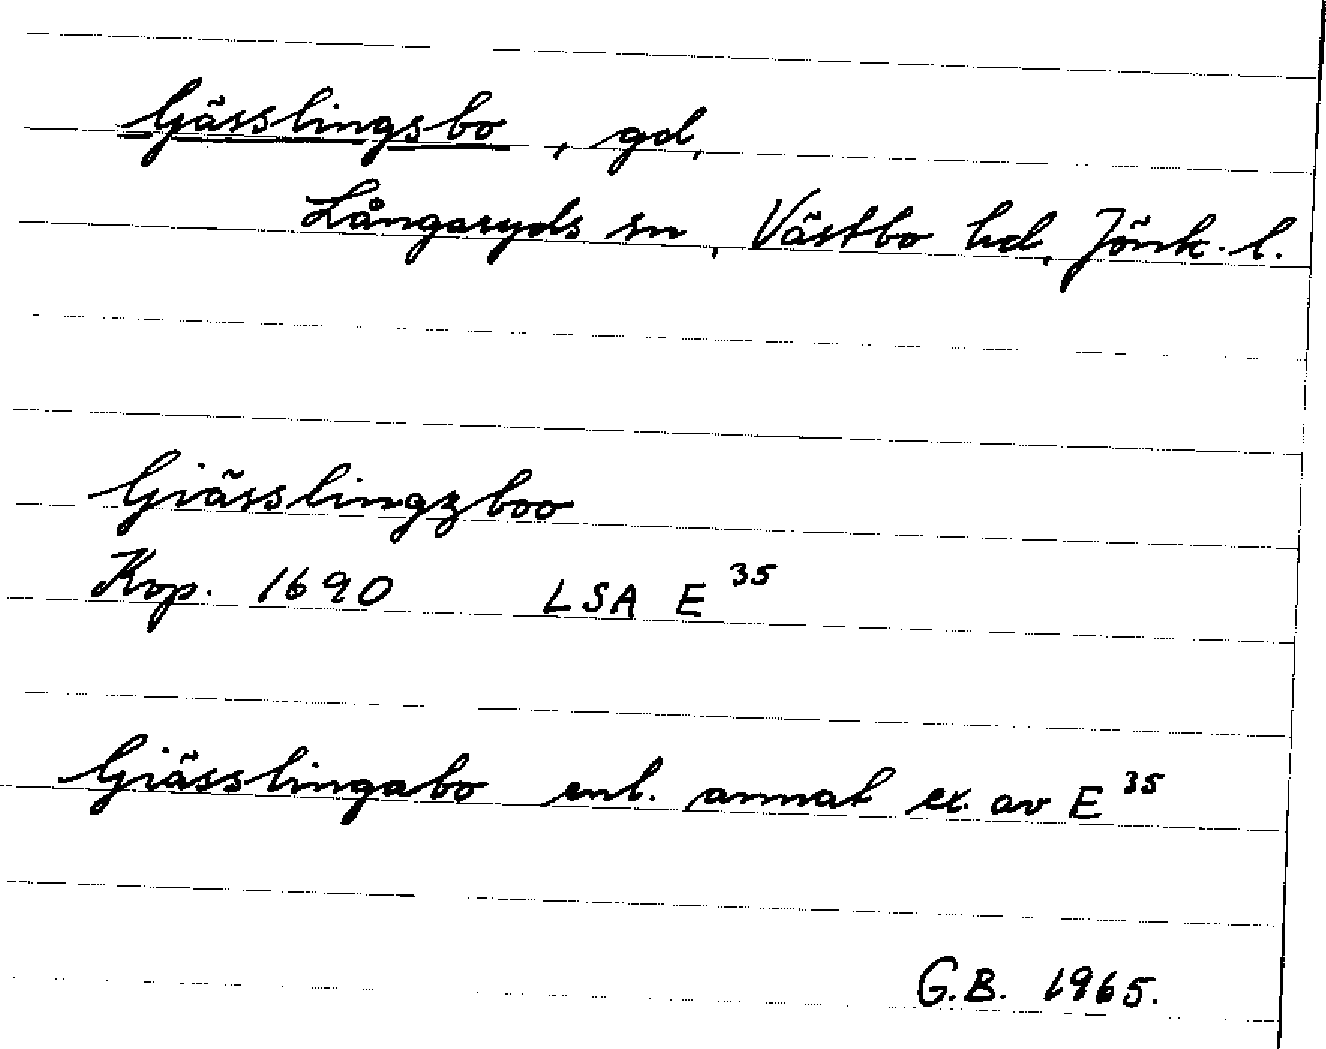 Gässlingsbo, gd,
Långaryds sn, Västbo hd, Jönk. l.
Giässlingzboo
Kop. 1690 LSA E 35
Giässlingabo enl. annat ex. av E 35
G.B. 1965.